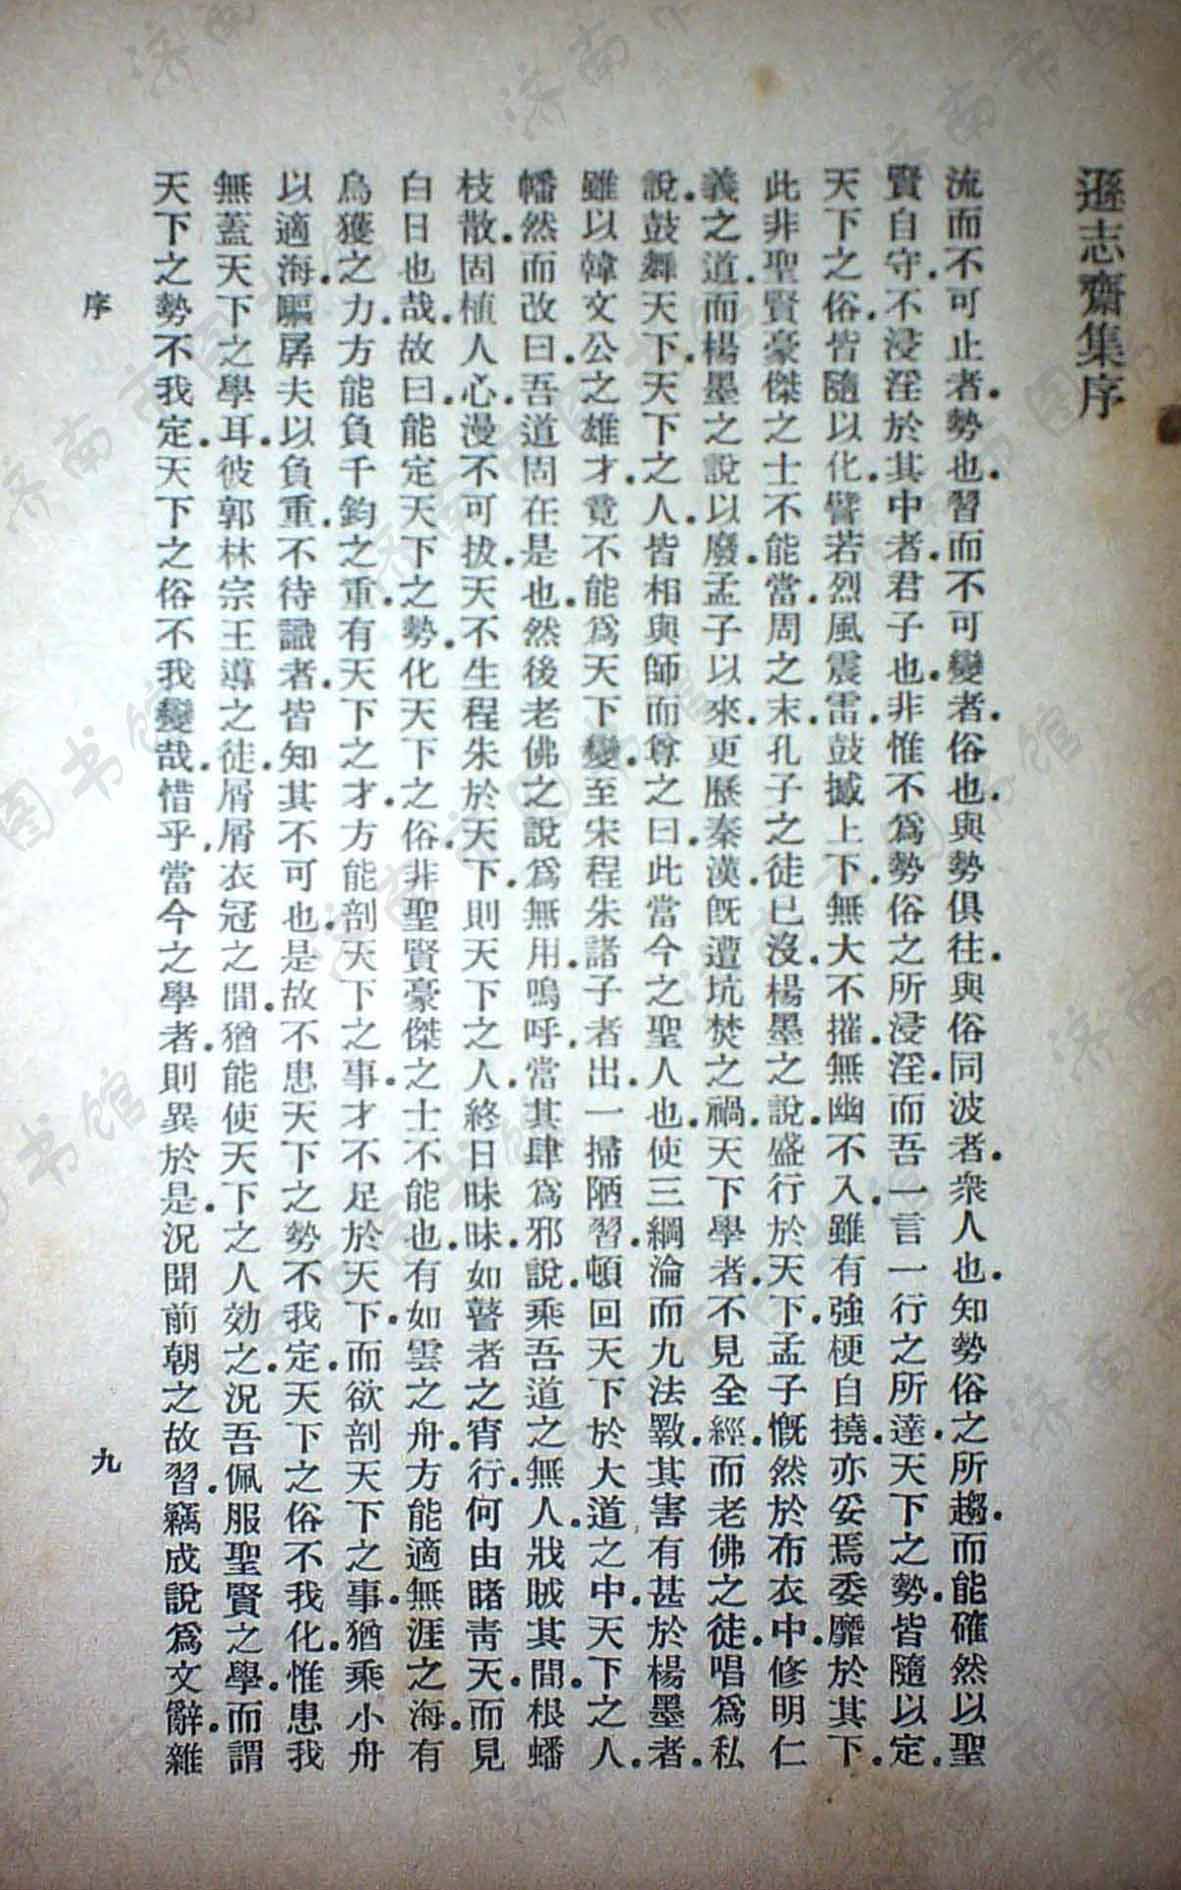 遜志齋集序
流而不可止者。勢也。習而不可變者。俗也。與勢俱往。與俗同波者。衆人也。知勢俗之所趨。而能確然以聖
賢自守。不浸淫於其中者。君子也。非惟不爲勢俗之所浸淫。而吾一言一行之所達。天下之勢。皆隨以定。
天下之俗。皆隨以化。譬若烈風震雷。鼓撼上下。無大不摧。無幽不入。雖有強梗自撓。亦妥焉委靡於其下。
此非聖賢豪傑之士不能當。周之末。孔子之徒已沒。楊墨之說。盛行於天下。孟子慨然於布衣中。修明仁
義之道。而楊墨之說以廢。孟子以來。更歷秦漢。旣遭坑焚之禍。天下學者。不見全經。而老佛之徒。唱爲私
說。鼓舞天下。天下之人。皆相與師而尊之曰。此當今之聖人也。使三綱淪而九法斁。其害有甚於楊墨者。
雖以韓文公之雄才。竟不能爲天下變。至宋程朱諸子者出。一掃陋習。頓回天下於大道之中。天下之人。
幡然而改曰。吾道固在是也。然後老佛之說爲無用。嗚呼。當其肆爲邪說。乘吾道之無人。戕賊其間。根蟠
枝散。固植人心。漫不可拔。天不生程朱於天下。則天下之人。終日昧昧。如瞽者之宵行。何由睹靑天。而見
白日也哉。故曰。能定天下之勢。化天下之俗。非聖賢豪傑之士不能也。有如雲之舟。方能適無涯之海。有
烏獲之力。方能負千鈞之重。有天下之才。方能剖天下之事。才不足於天下。而欲剖天下之事。猶乘小舟
以適海。驅孱夫以負重。不待識者。皆知其不可也。是故不患天下之勢不我定。天下之俗不我化。惟患我
無蓋天下之學耳。彼郭林宗王導之徒。屑屑衣冠之間。猶能使天下之人効之。況吾佩服聖賢之學。而謂
天下之勢不我定。天下之俗不我變哉。惜乎。當今之學者。則異於是。況聞前朝之故習。竊成說爲文辭。雜
序
九